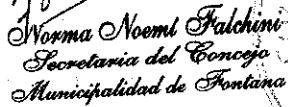 Norma Noemí Falchini
Secretaria del Concejo
Municipalidad de Fontana